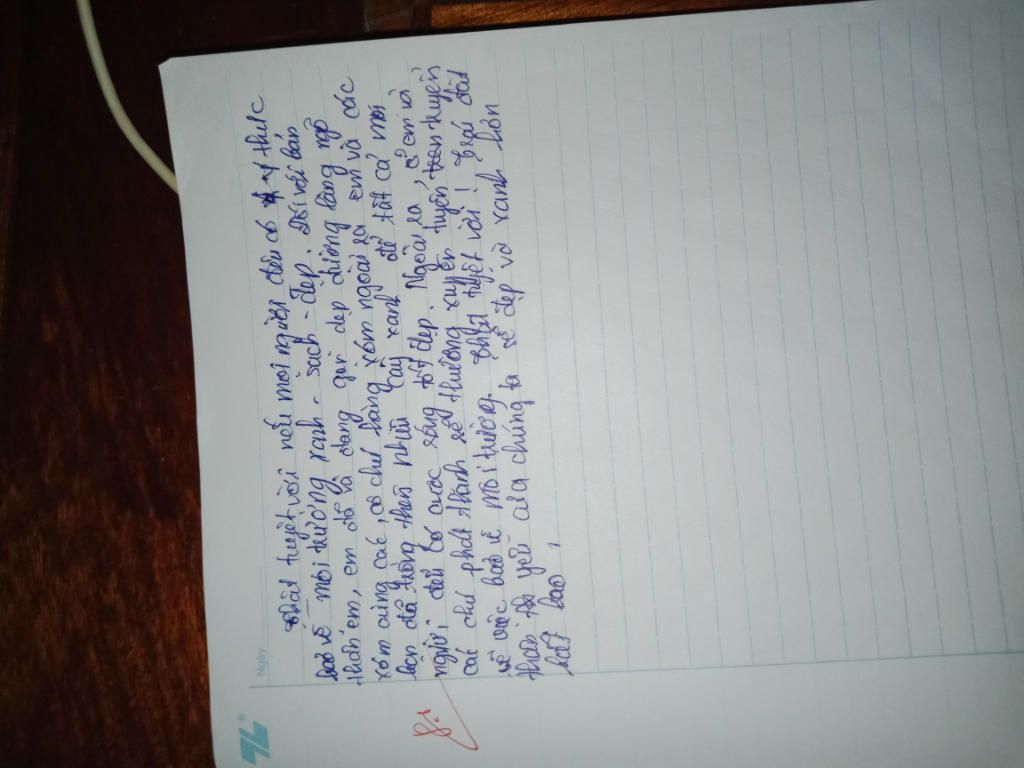 Ngày
Thật tuyệt vời nếu mỗi người đều có ý thức
bảo vệ môi trường xanh - sạch - đẹp. Đối với bản
thân em, em đã và đang gìn dẹp đường làng ngõ
xóm cùng các cô chú hàng xóm ngoài ra em và các
bạn đã trồng thêm nhiều cây xanh để tất cả mọi
người đều có cuộc sống tốt đẹp. Ngoài ra, em và
các chú phát thanh sẽ thường xuyên tuyên truyền
về việc bảo vệ môi trường. Thật tuyệt vời! Trái đất
thân yêu của chúng ta sẽ đẹp và xanh hơn
biết bao!
8.1